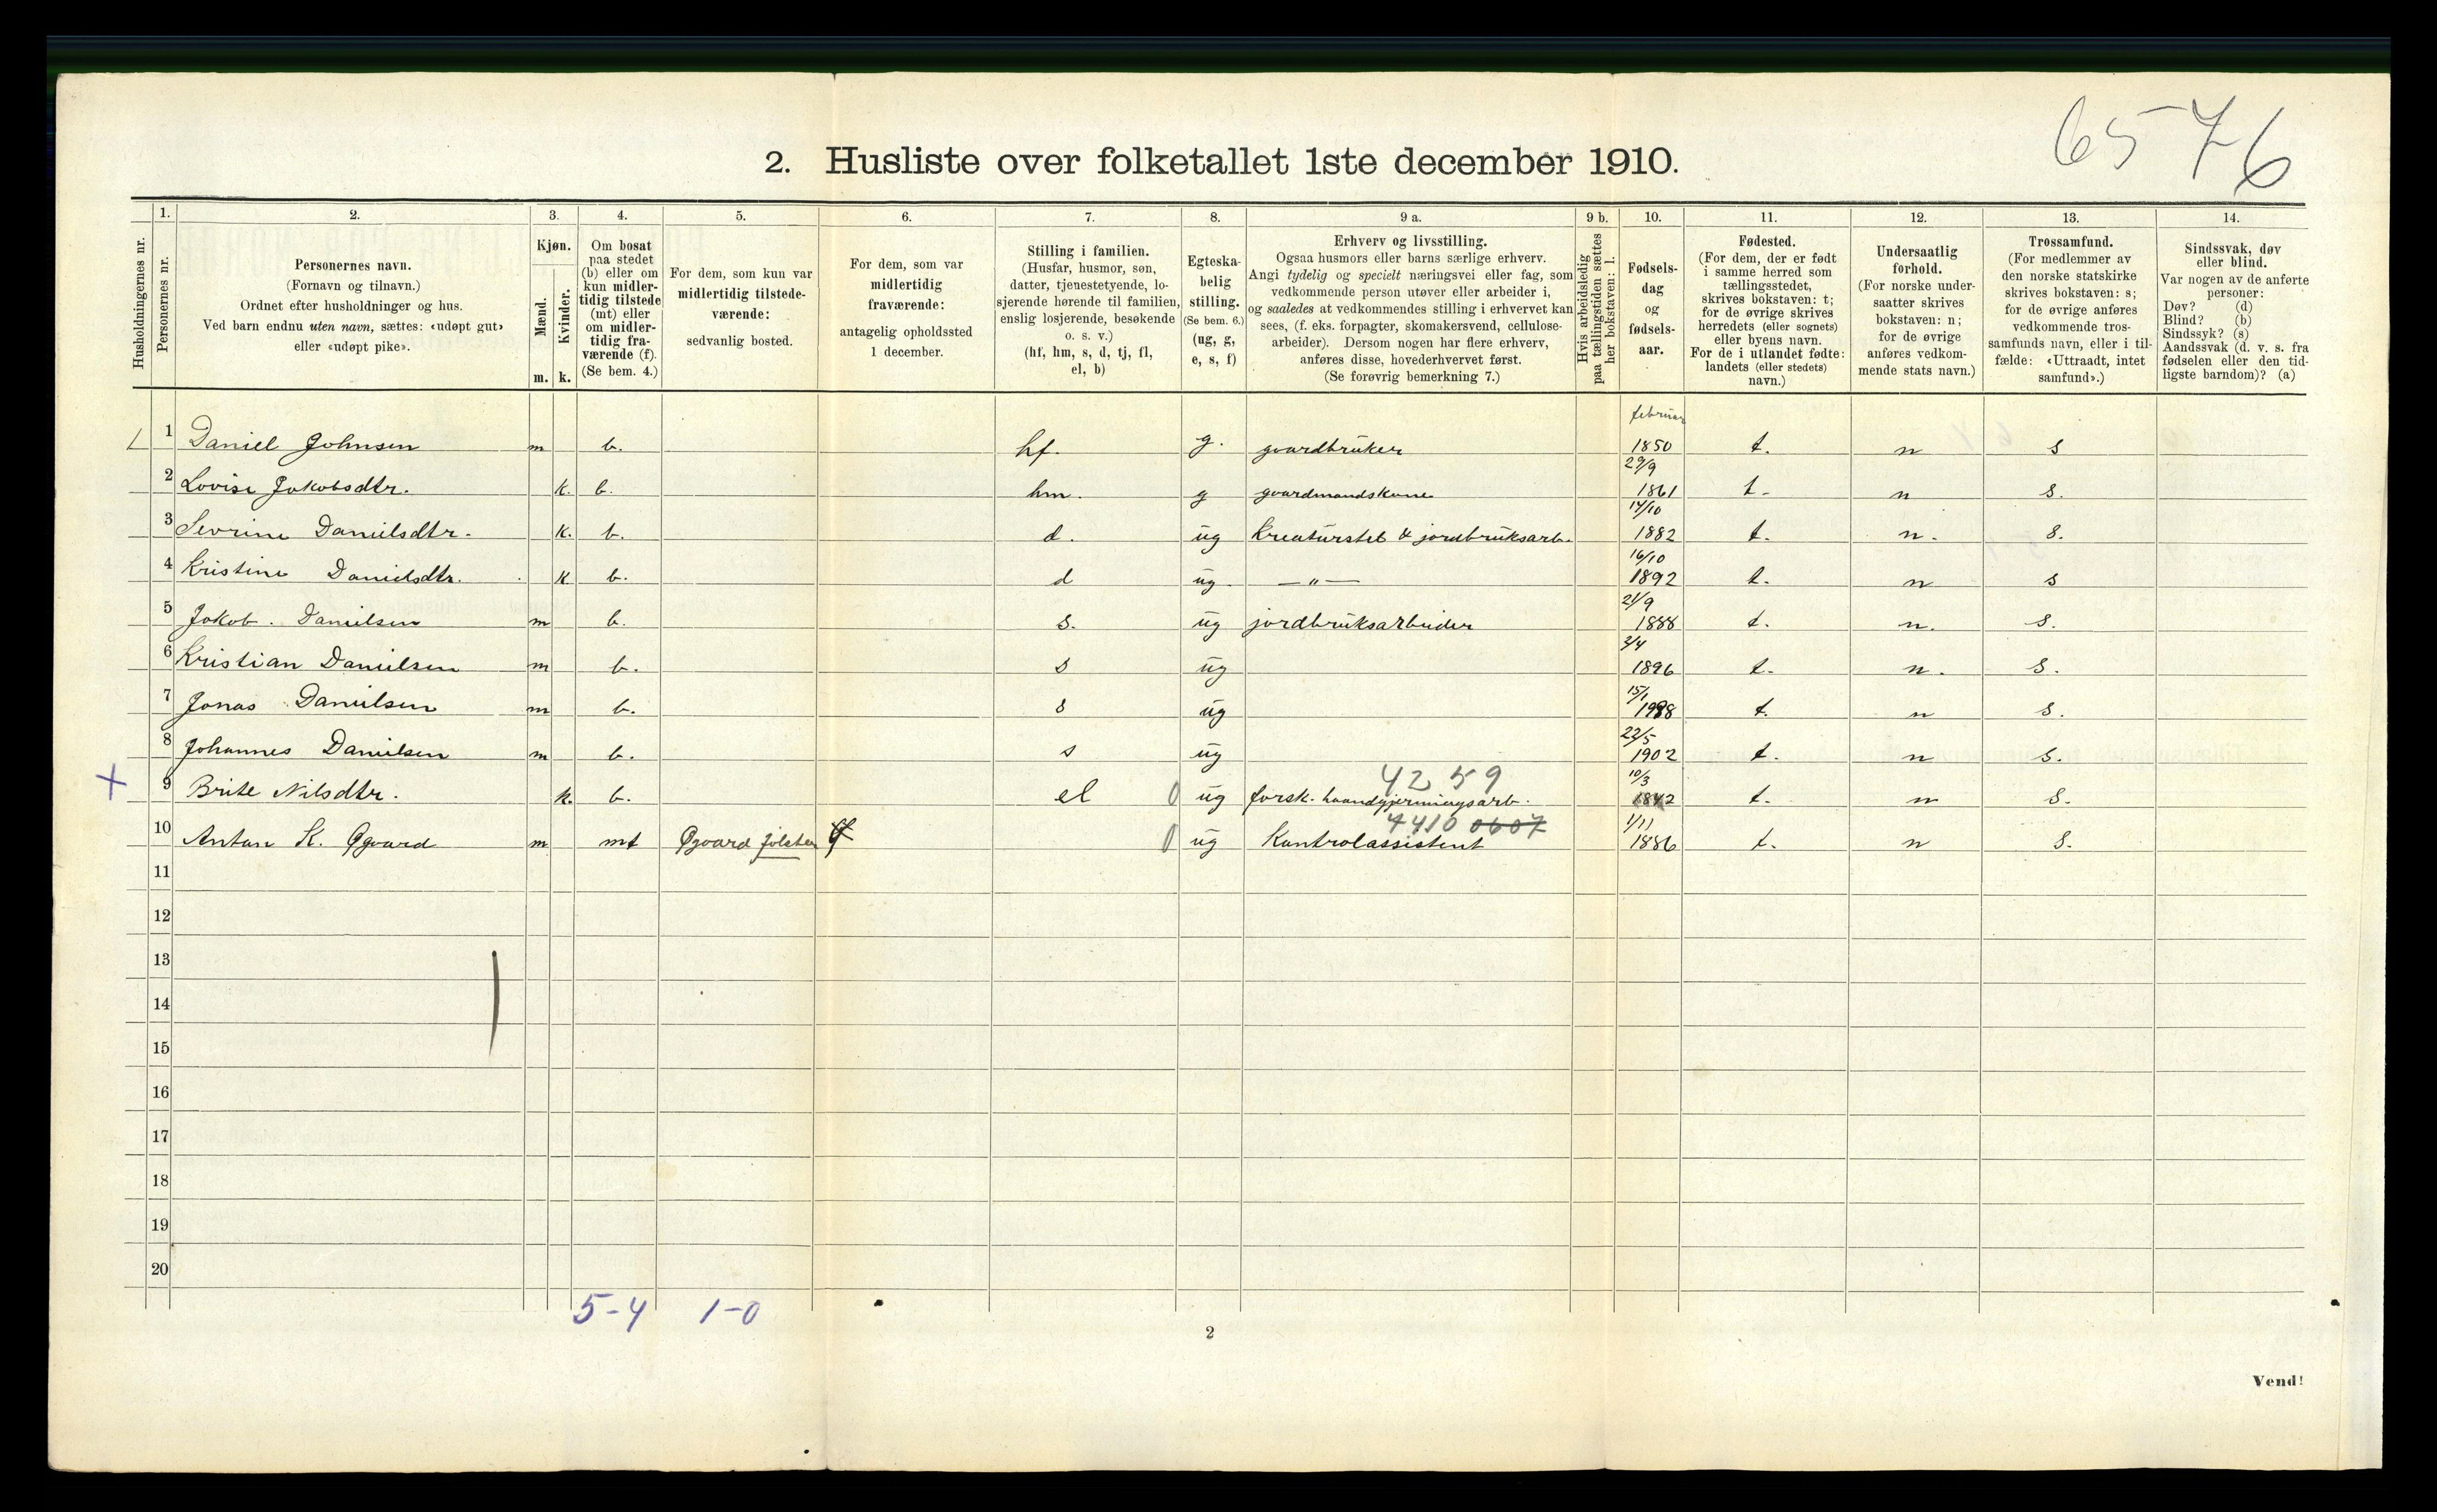 6576
2. Husliste over folketallet 1ste december 1910.
1. 2. 3. 4. 5. 6. 7. 8. 9 a. 9 b. 10. 11. 12. 13. 14.
Husholdningernes nr.
Personernes nr.
Personernes navn.
(Fornavn og tilnavn.)
Ordnet efter husholdninger og hus.
Ved barn endnu uten navn, sættes: «udøpt gut»
eller «udøpt pike».
Kjøn.
Mænd.
Kvinder.
m. k.
Om bosat
paa stedet
(b) eller om
kun midler-
tidig tilstede
(mt) eller
om midler-
tidig fra-
værende (f).
(Se bem. 4.)
For dem, som kun var
midlertidig tilstede-
værende:
sedvanlig bosted.
For dem, som var
midlertidig
fraværende:
antagelig opholdssted
1 december.
Stilling i familien.
(Husfar, husmor, søn,
datter, tjenestetyende, lo-
sjerende hørende til familien,
enslig losjerende, besøkende
o. s. v.)
(hf, hm, s, d, tj, fl,
el, b)
Egteska-
belig
stilling.
(Se bem. 6.)
(ug, g,
e, s, f)
Erhverv og livsstilling.
Ogsaa husmors eller barns særlige erhverv.
Angi tydelig og specielt næringsvei eller fag, som
vedkommende person utøver eller arbeider i,
og saaledes at vedkommendes stilling i erhvervet kan
sees, (f. eks. forpagter, skomakersvend, cellulose-
arbeider). Dersom nogen har flere erhverv,
anføres disse, hovederhvervet først.
(Se forøvrig bemerkning 7.)
Hvis arbeidsledig
paa tællingstiden sættes
her bokstaven: l.
Fødsels-
dag
og
fødsels-
aar.
Fødested.
(For dem, der er født
i samme herred som
tællingsstedet,
skrives bokstaven: t;
for de øvrige skrives
herredets (eller sognets)
eller byens navn.
For de i utlandet fødte:
landets (eller stedets)
navn.)
Undersaatlig
forhold.
(For norske under-
saatter skrives
bokstaven: n;
for de øvrige
anføres vedkom-
mende stats navn.)
Trossamfund.
(For medlemmer av
den norske statskirke
skrives bokstaven: s;
for de øvrige anføres
vedkommende tros-
samfunds navn, eller i til-
fælde: «Uttraadt, intet
samfund».)
Sindssvak, døv
eller blind.
Var nogen av de anførte
personer:
Døv? (d)
Blind? (b)
Sindssyk? (s)
Aandssvak (d. v. s. fra
fødselen eller den tid-
ligste barndom)? (a)
februar
1 Daniel Johnsen m b. hf. g. gaardbruker 1850 t. n s
29/9
2 Lovise Jakobsdtr. k. b. hm. g gaardmandskone 1861 t. n s.
14/10
3 Sevrine Danielsdtr. k. b. d. ug Kreaturstel & jordbruksarb. 1882 t. n. s.
16/10
4 Kristine Danielsdtr. k b. d ug. —"— 1892 t. n s
21/9
5 Jakob. Danielsen m b. s. ug jordbruksarbeider 1888 t. n. s.
3/4
6 Kristian Danielsen m b. s ug 1896 t. n. s.
15/1
7 Jonas Danielsen m b. s ug t. n s.
22/5
8 Johannes Danielsen m b. s ug 1902 t. n s.
4259 10/3
+ 9 Brite Nilsdtr. k. b. el 0 ug forsk. haandgjerningsarb. 1842 t. n s.
4410 0607 1/11
10 Antan K. Øgaard m mt Øgaard Jølster 0 ug Kontrolassistent 1886 t. n s.
11
12
13
14
15
16
17
18
19
20
5-4 1-0
2
Vend!